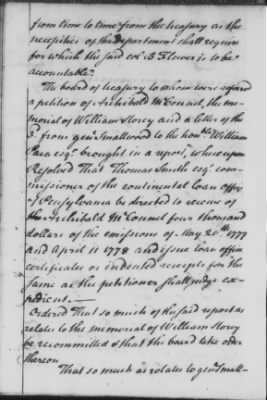 from time to time from the treasury as the
necessities of the department shall require
for which the said col B. Flower is to be
accountable.
The board of treasury to whom were referred
a petition of Archibald McConnel, the me-
morial of William Story and a letter of the
3d. from genl Smallwood to the honble. William
Paca esqr. brought in a report, whereupon
Resolved That Thomas Smith esqr com-
missioner of the continental loan office
of Pensylvania be directed to receive of
the Archibald McConnel four thousand
dollars of the emissions of May 20th. 1777
and April 11 1778 and issue loan office
certificates or indented receipts for the
same as the petitioner shall judge ex-
pedient.
Ordered That so much of the said report as
relates to the memorial of William Story
be recommitted & that the board take order
thereon
That so much as relates to genl Small-